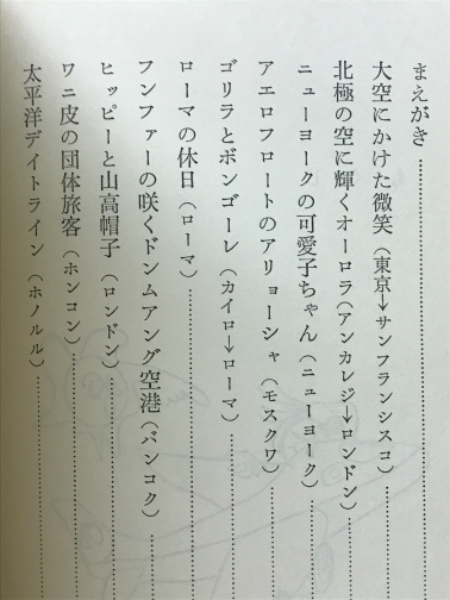 まえがき
大空にかけた微笑（東京→サンフランシスコ）
北極の空に輝くオーロラ（アンカレジ→ロンドン）
ニューヨークの可愛子ちゃん（ニューヨーク）
アエロフロートのアリョーシャ（モスクワ）
ゴリラとボンゴーレ（カイロ→ローマ）
ローマの休日（ローマ）
フンファーの咲くドンムアング空港（バンコク）
ヒッピーと山高帽子（ロンドン）
ワニ皮の団体旅客（ホンコン）
太平洋デイトライン（ホノルル）